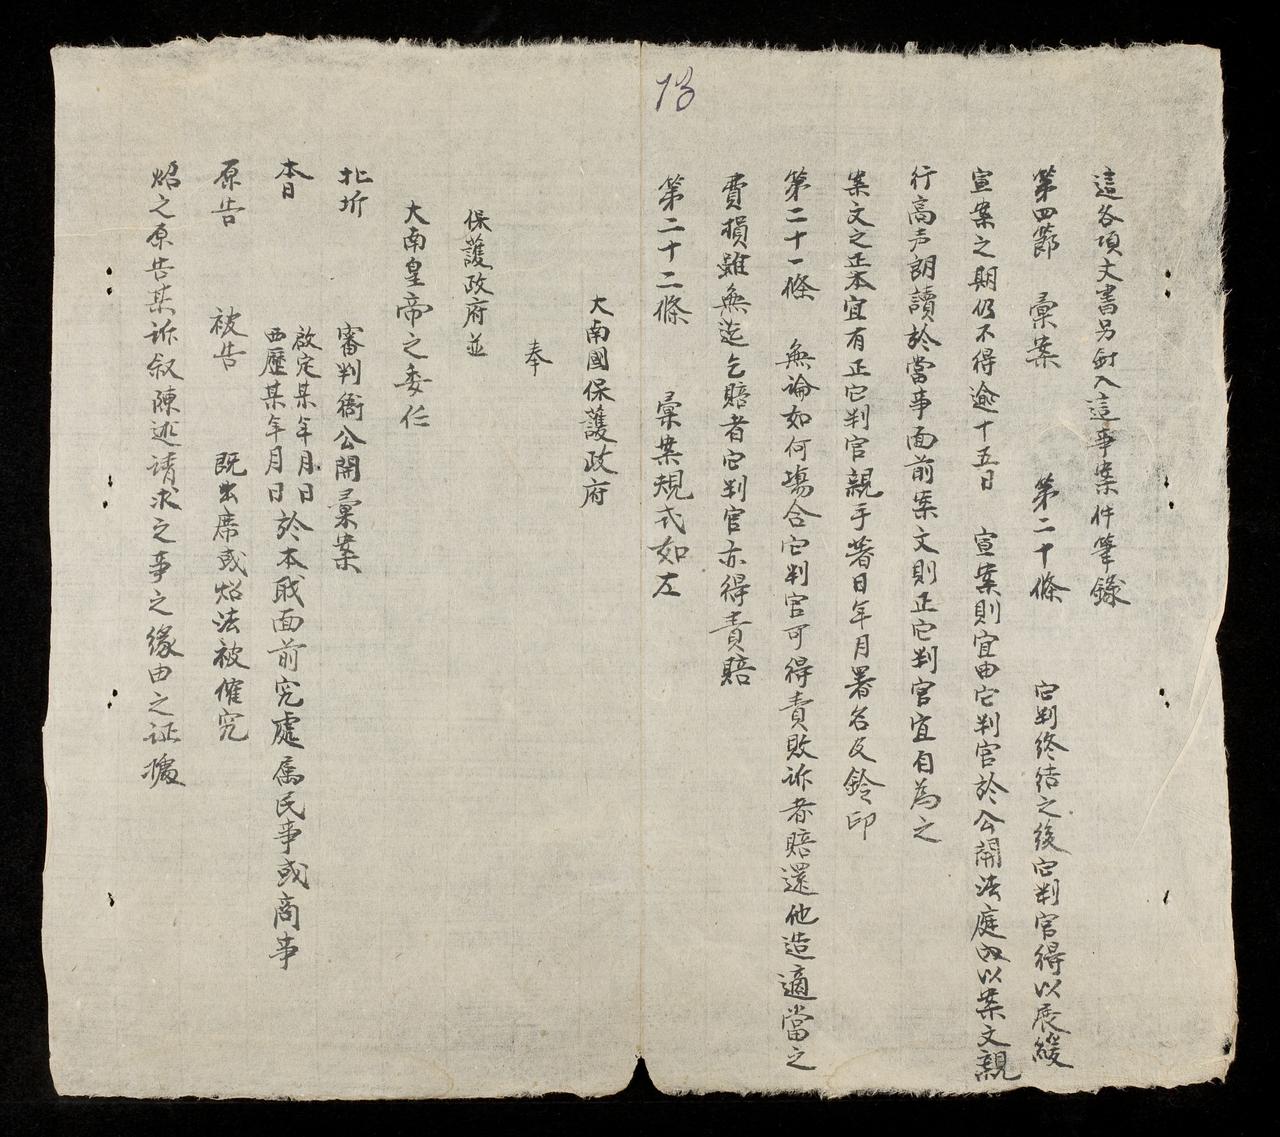 13
這各項文書另釘入這事案件筆錄
第四節 彙案 第二十條 宅判终结之後宅判官得以展緩
宣案之期仍不得逾十五日 宣案則宜由宅判官於公開法庭內以案文親
行高声朗讀於當事面前案文則正宅判官宜自為之
案文之正本宜有正宅判官親手著日年月署名及鈴印
第二十一條 無論如何場合宅判官可得責敗訴者賠還他造適當之
費損雖無迄乞賠者宅判官亦得責賠
第二十二條 彙案規式如左
大南國保護政府
奉
保護政府並
大南皇帝之委任
北圻 審判衙公開彙案
本日 啟定某年月日 西歷某年月日 於本戝面前究處属民事或商事
原告 被告 既出席或炤法被催究
炤之原告某訴叙陳述请求之事之缘由之証據